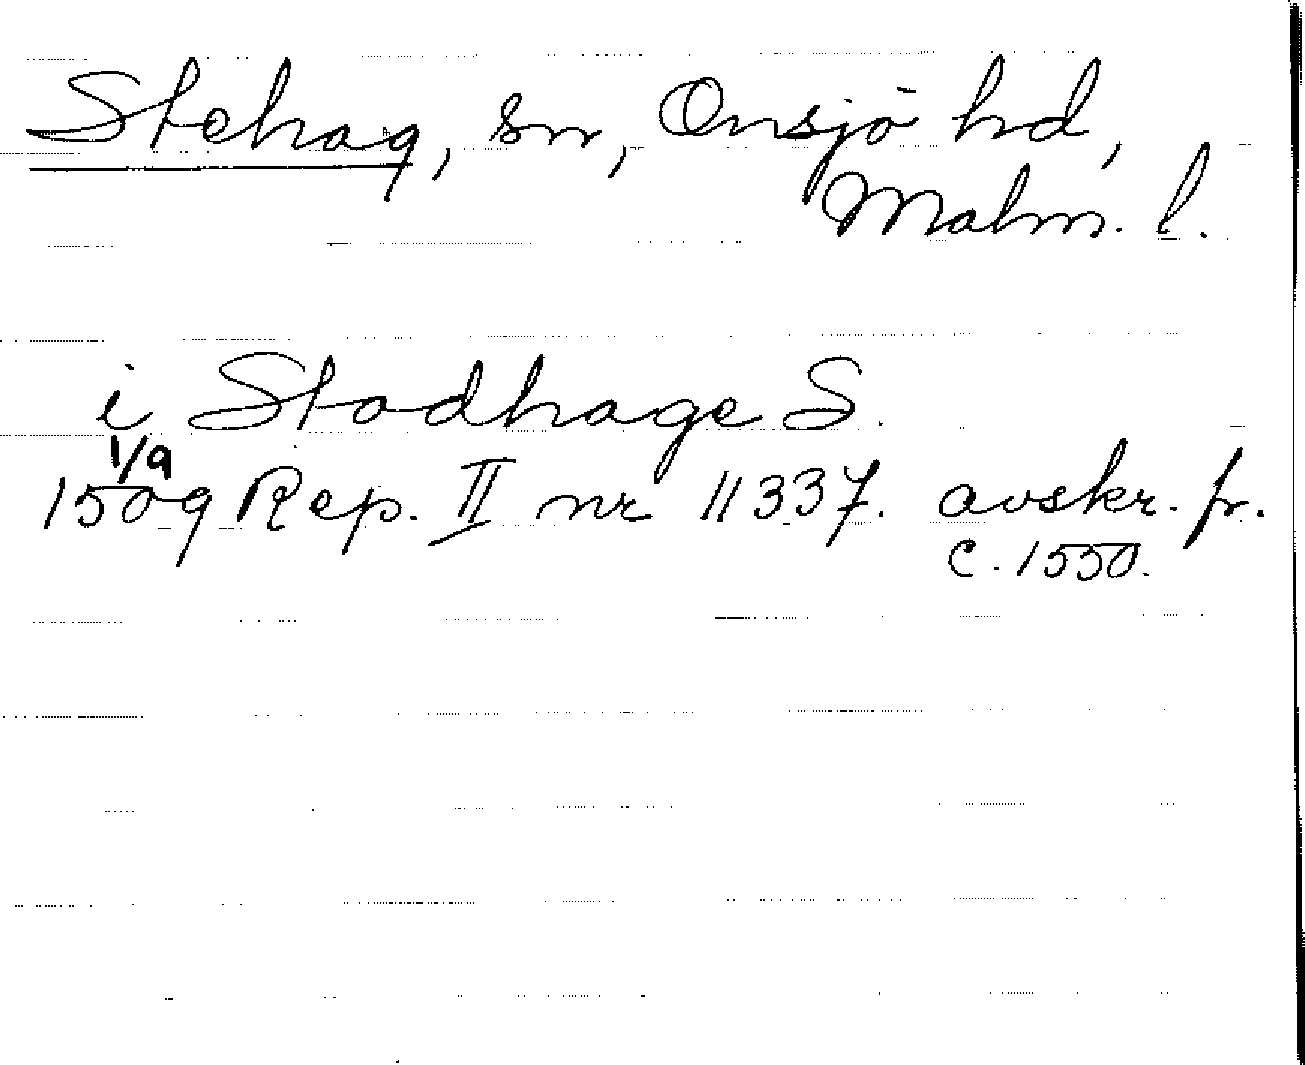 Stehag, sn, Onsjö hd,
Malm. l.
i Stodhage S.
1/9
1509 Rep. II nr 11337. avskr. fr.
c. 1550.